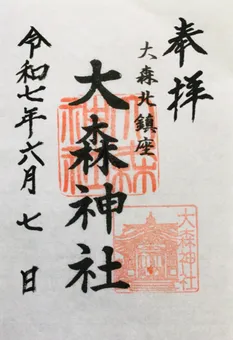 奉拝
大森北鎮座
大森神社
令和七年六月七日
大森神社
大森神社